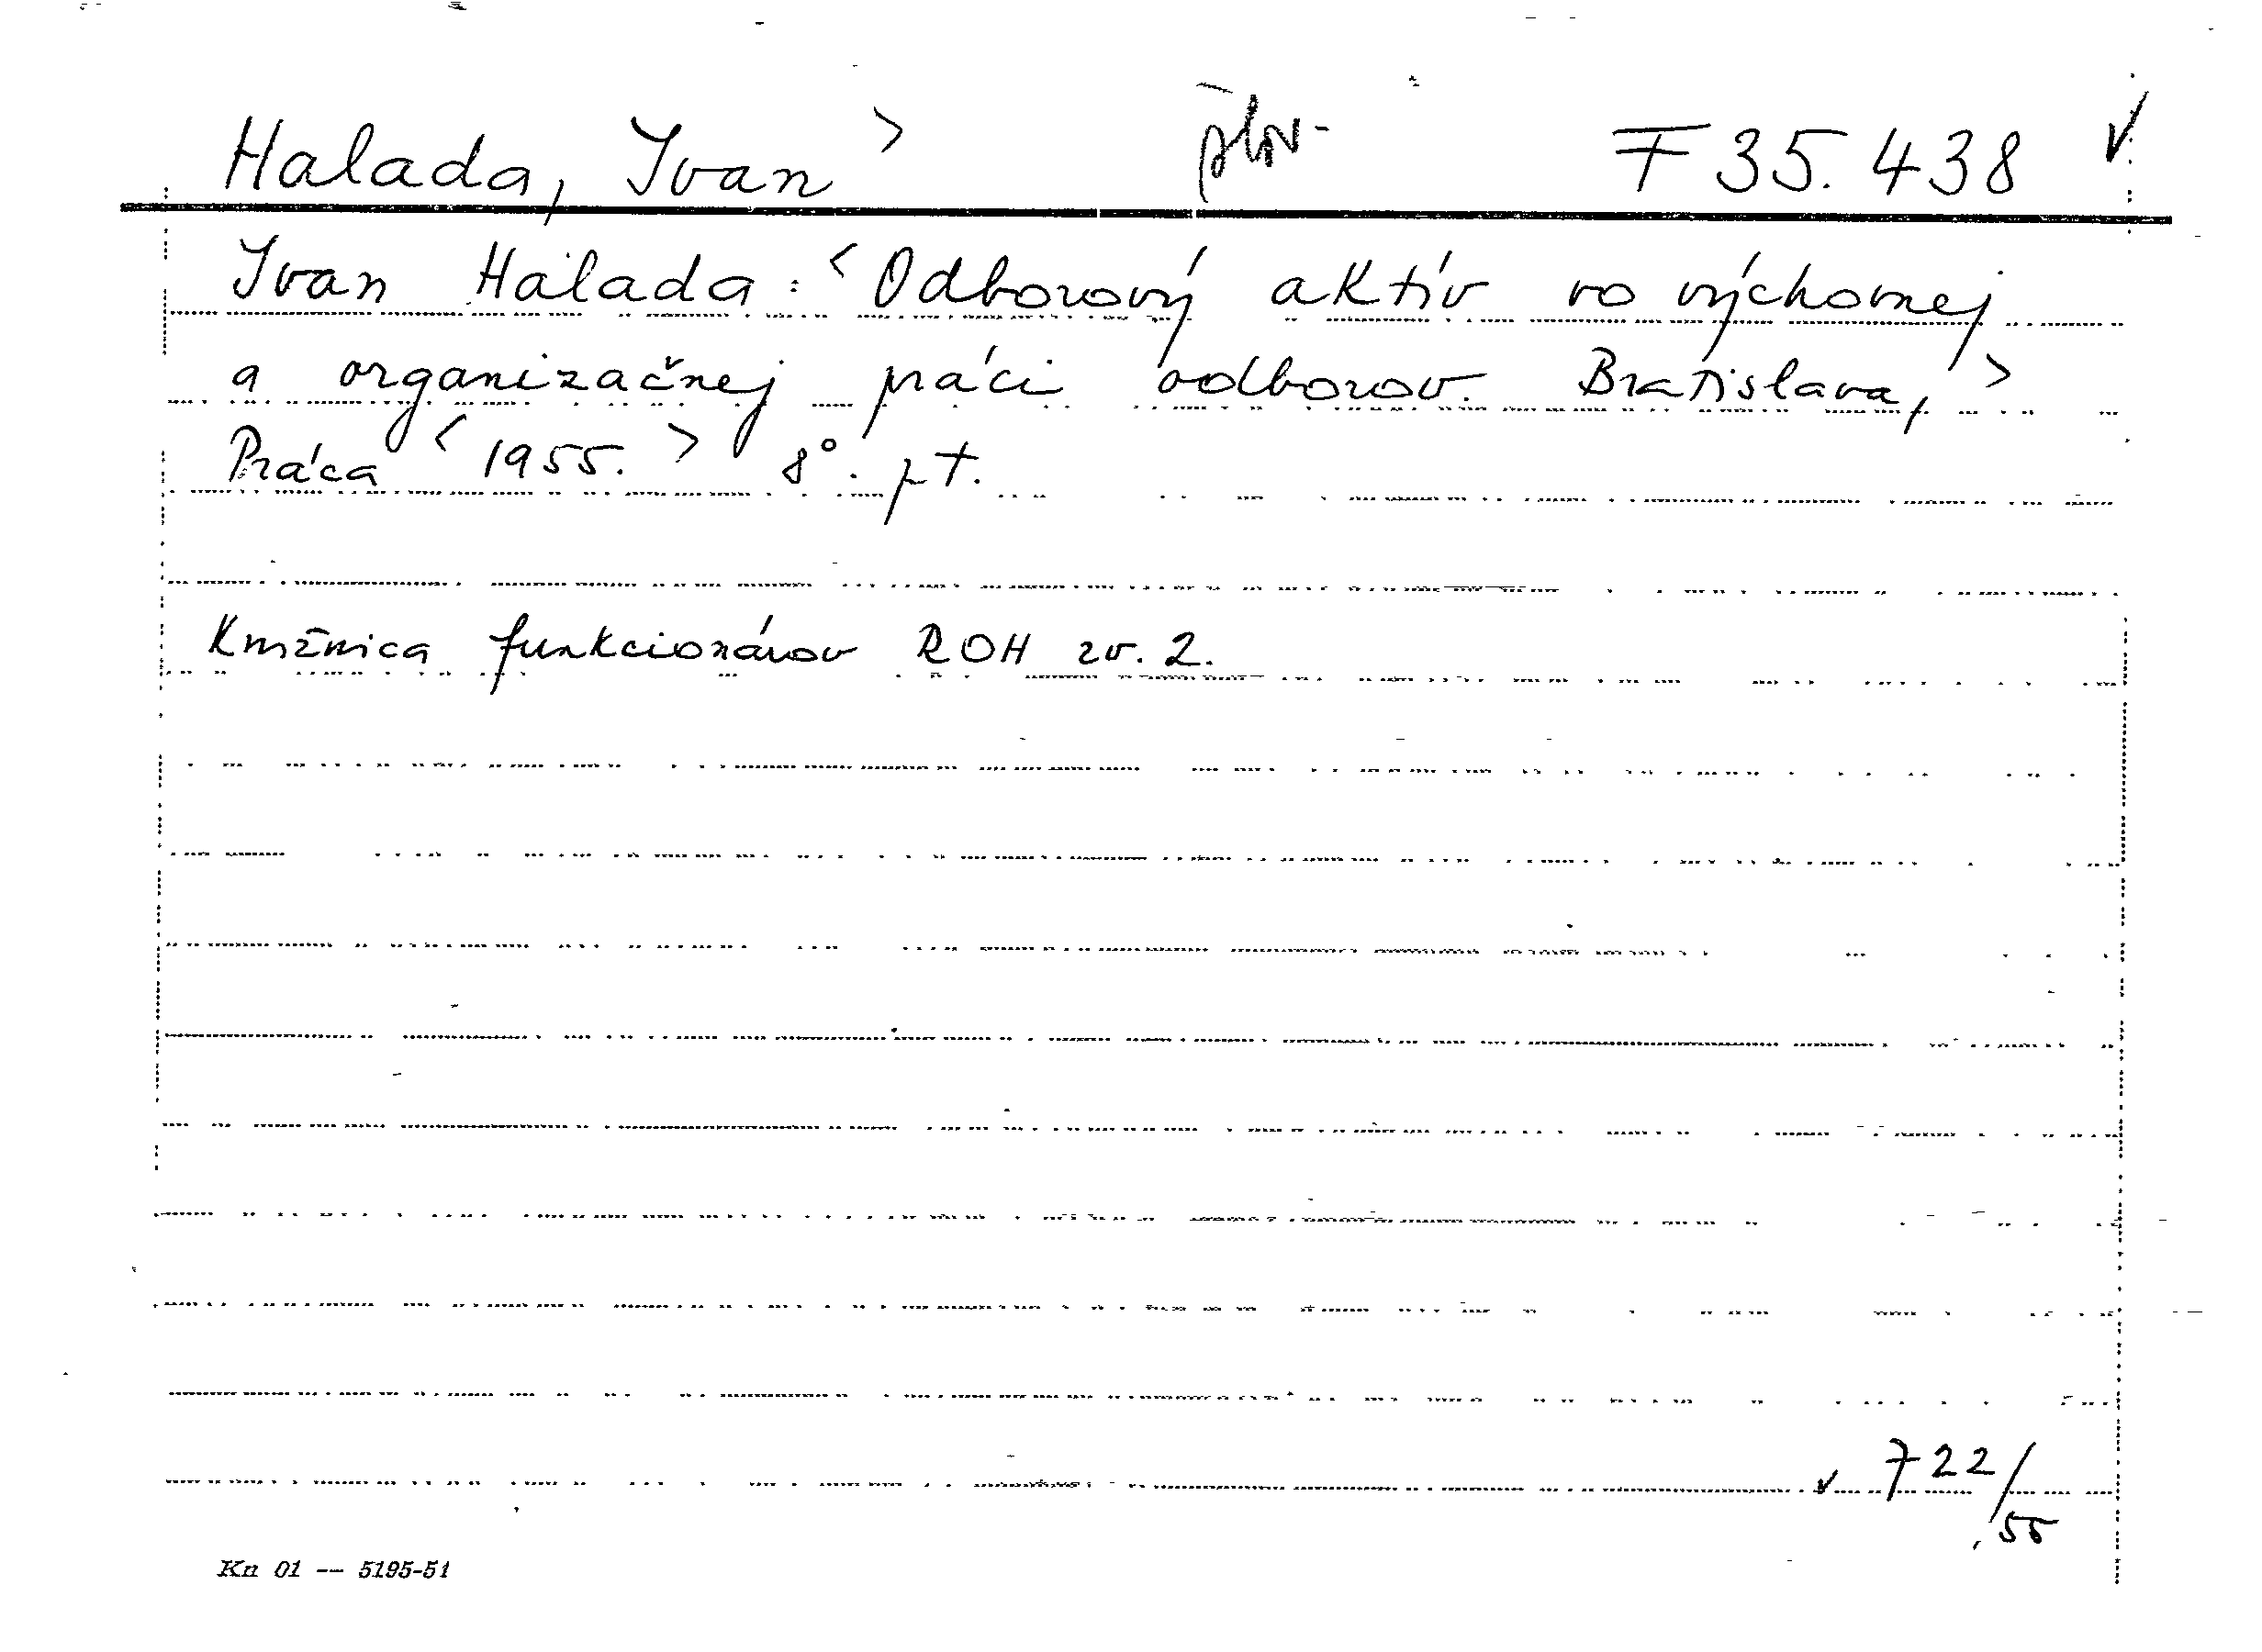 Halada, Ivan > slov- F 35.438 ✓
Ivan Halada: < Odborový aktív vo výchovnej
a organizačnej práci odborov. Bratislava, >
Práca < 1955. > 8°. pt.
Knižnica funkcionárov ROH zv. 2.
✓ 722/55
Kn 01 -- 5195-51